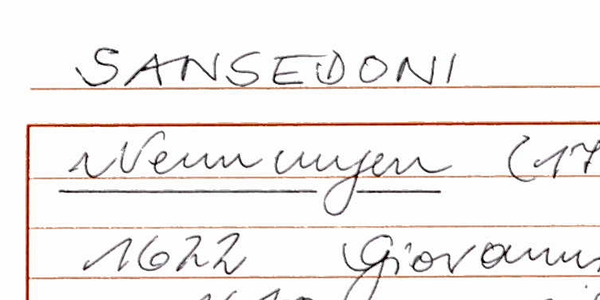 SANSEDONI
Nennungen (17
1622 Giovanni